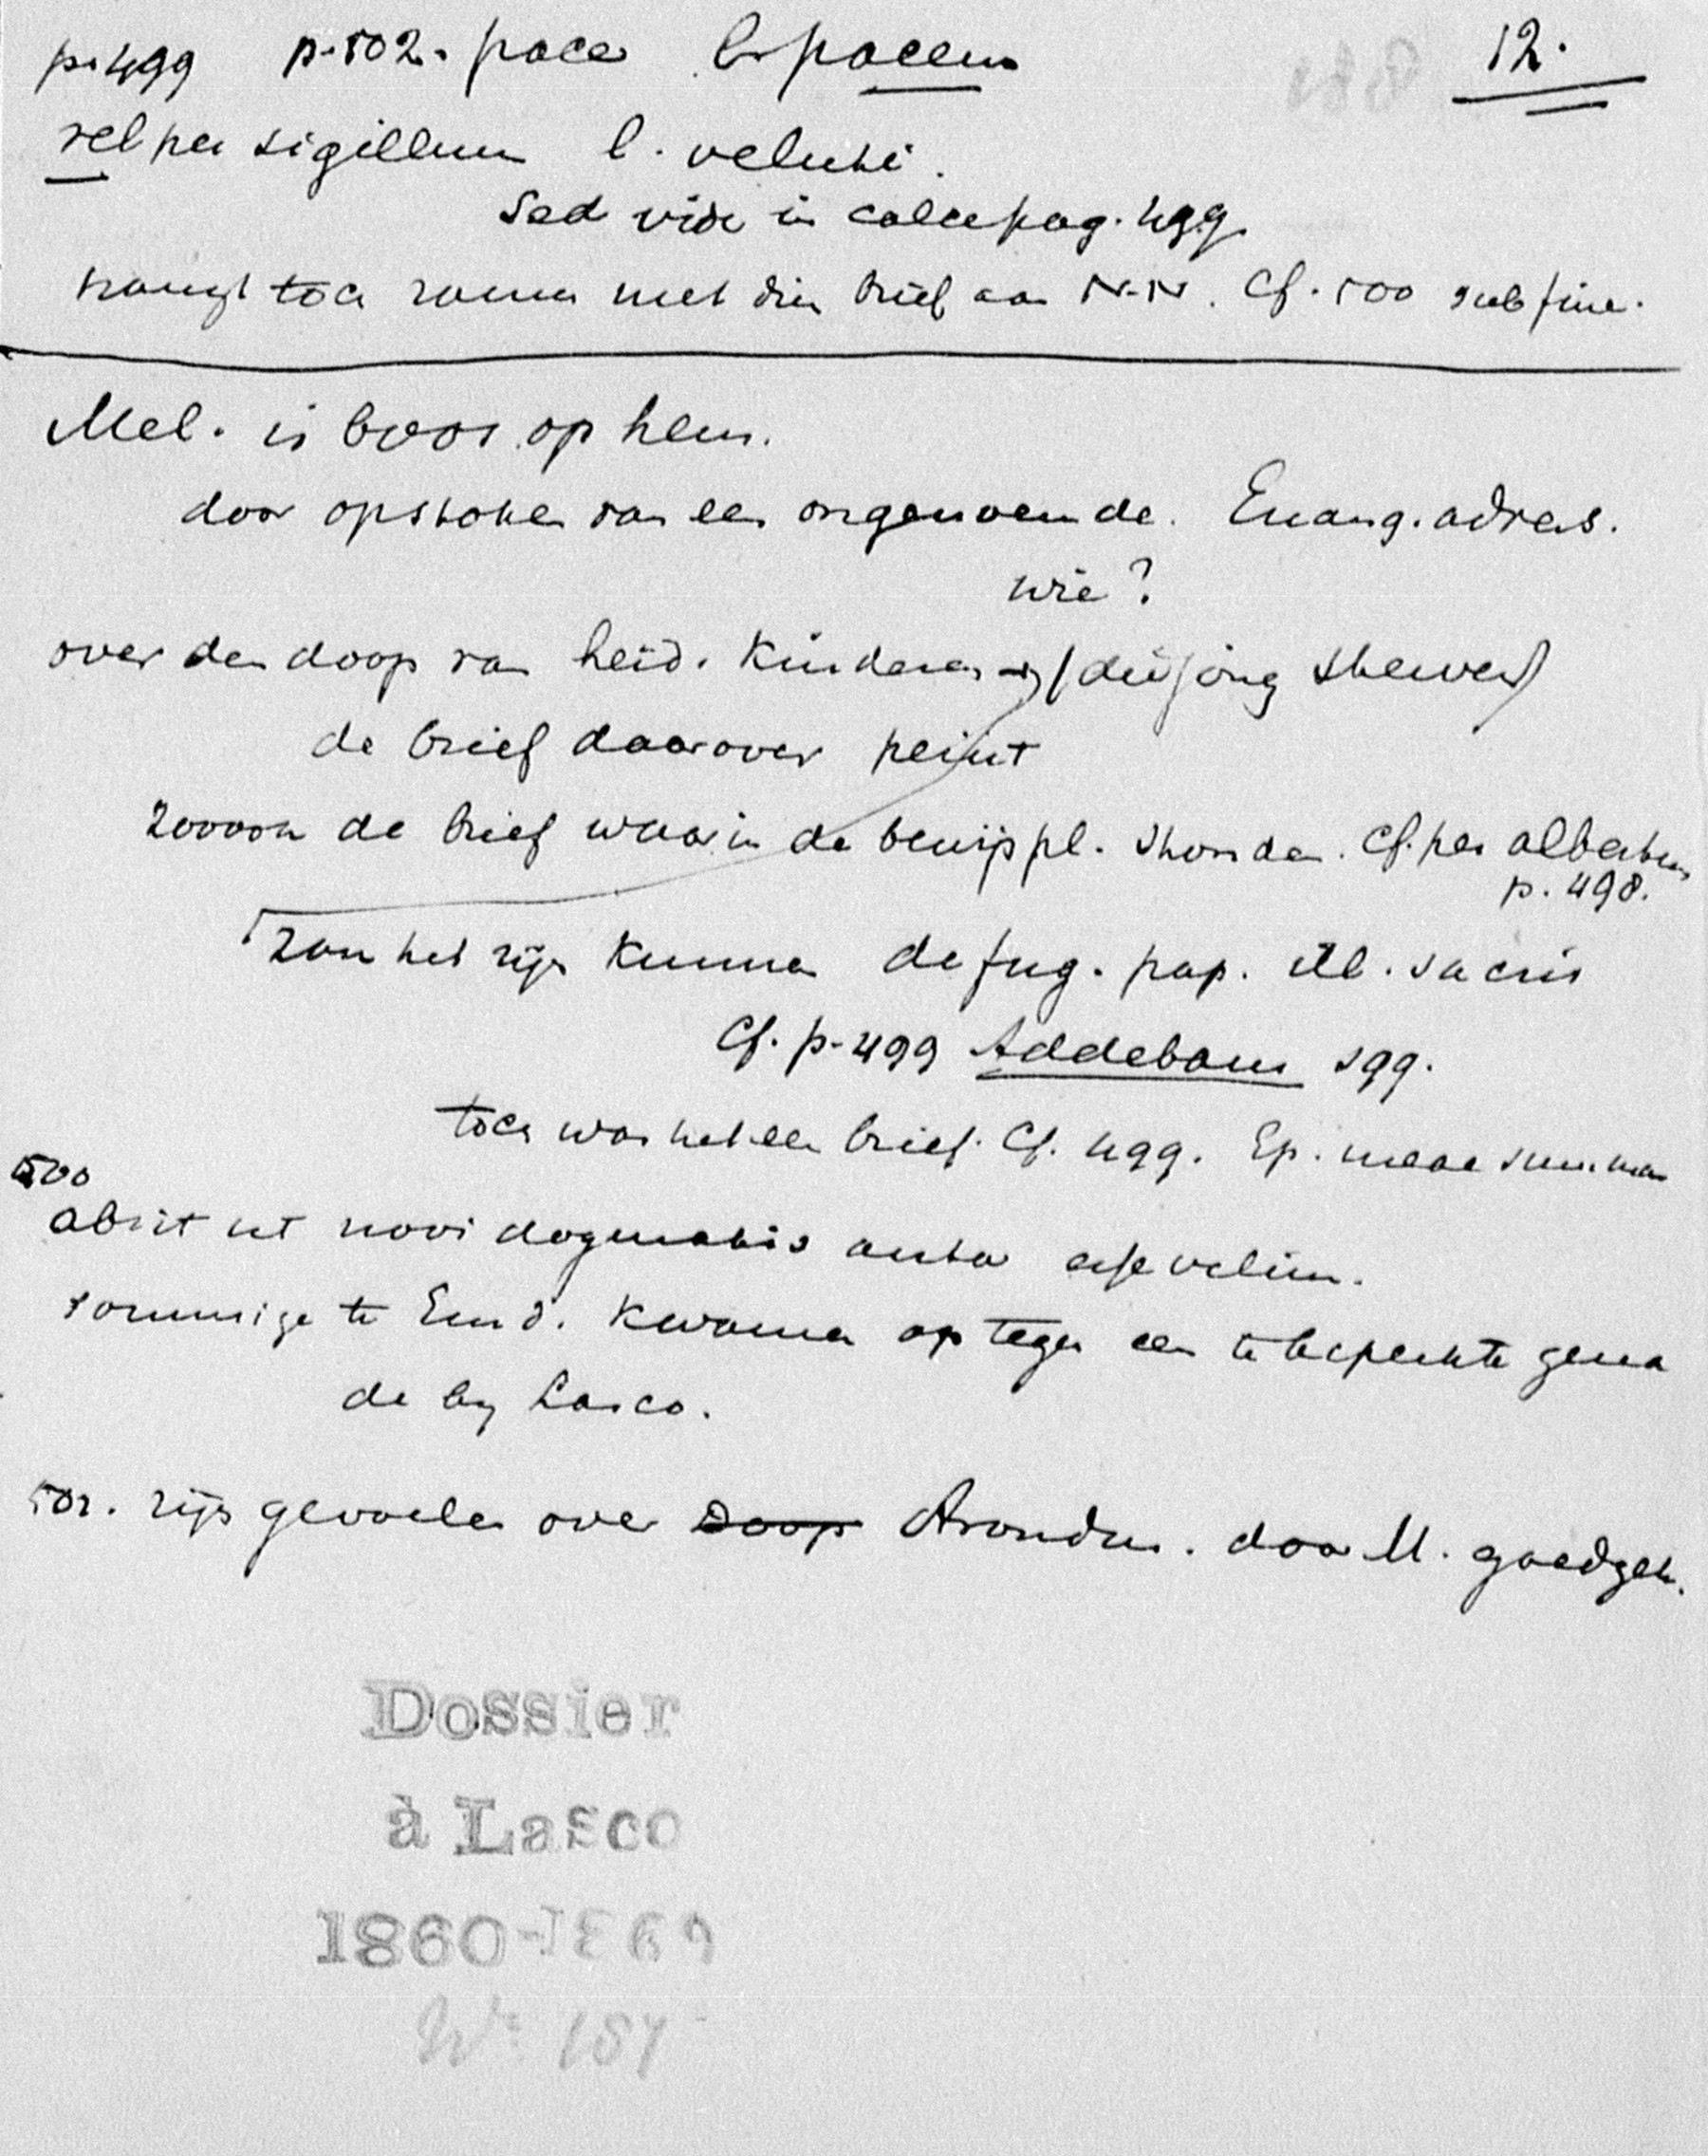 p. 499 p. 502. pace l. pacem 12.
vel per sigillum l. veluti.
Sed vide in calce pag. 499.
hangt toch samen met dien brief aan N.N. Cf. 500 sub fine.
Mel. is boos op hem.
door opstoken van een ongenoemde. Euang. advers.
wie?
over den doop van heid. kinderen (die jong sterven)
de brief daarover
zooook de brief waarin de bewijspl. stonden. Cf. per albertum
p. 498.
Zou het zijn kunnen de fug. pap. ill. sacris
Cf. p. 499 Addebam sqq.
toch was het een brief. Cf. 499. Ep. meae summam
500
abiit ut novi dogmatis autor esse velim.
sommige te Emd. kwamen op tegen een te beperkte gena
de by Lasco.
502. zijn gevoelen over Doop Avondm. door M. goedgek.
Dossier
à Lasco
1860-1869
No 187